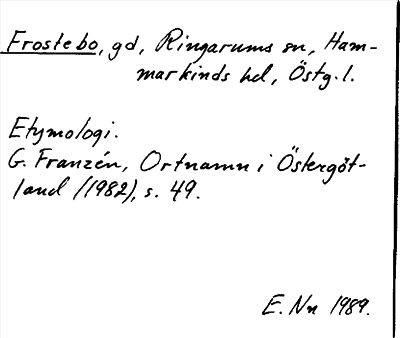 Frostebo, gd, Ringarums sn, Ham-
markinds hd, Östg. l.
Etymologi.
G. Franzén, Ortnamn i Östergöt-
land (1982), s. 49.
E. Nn 1989.